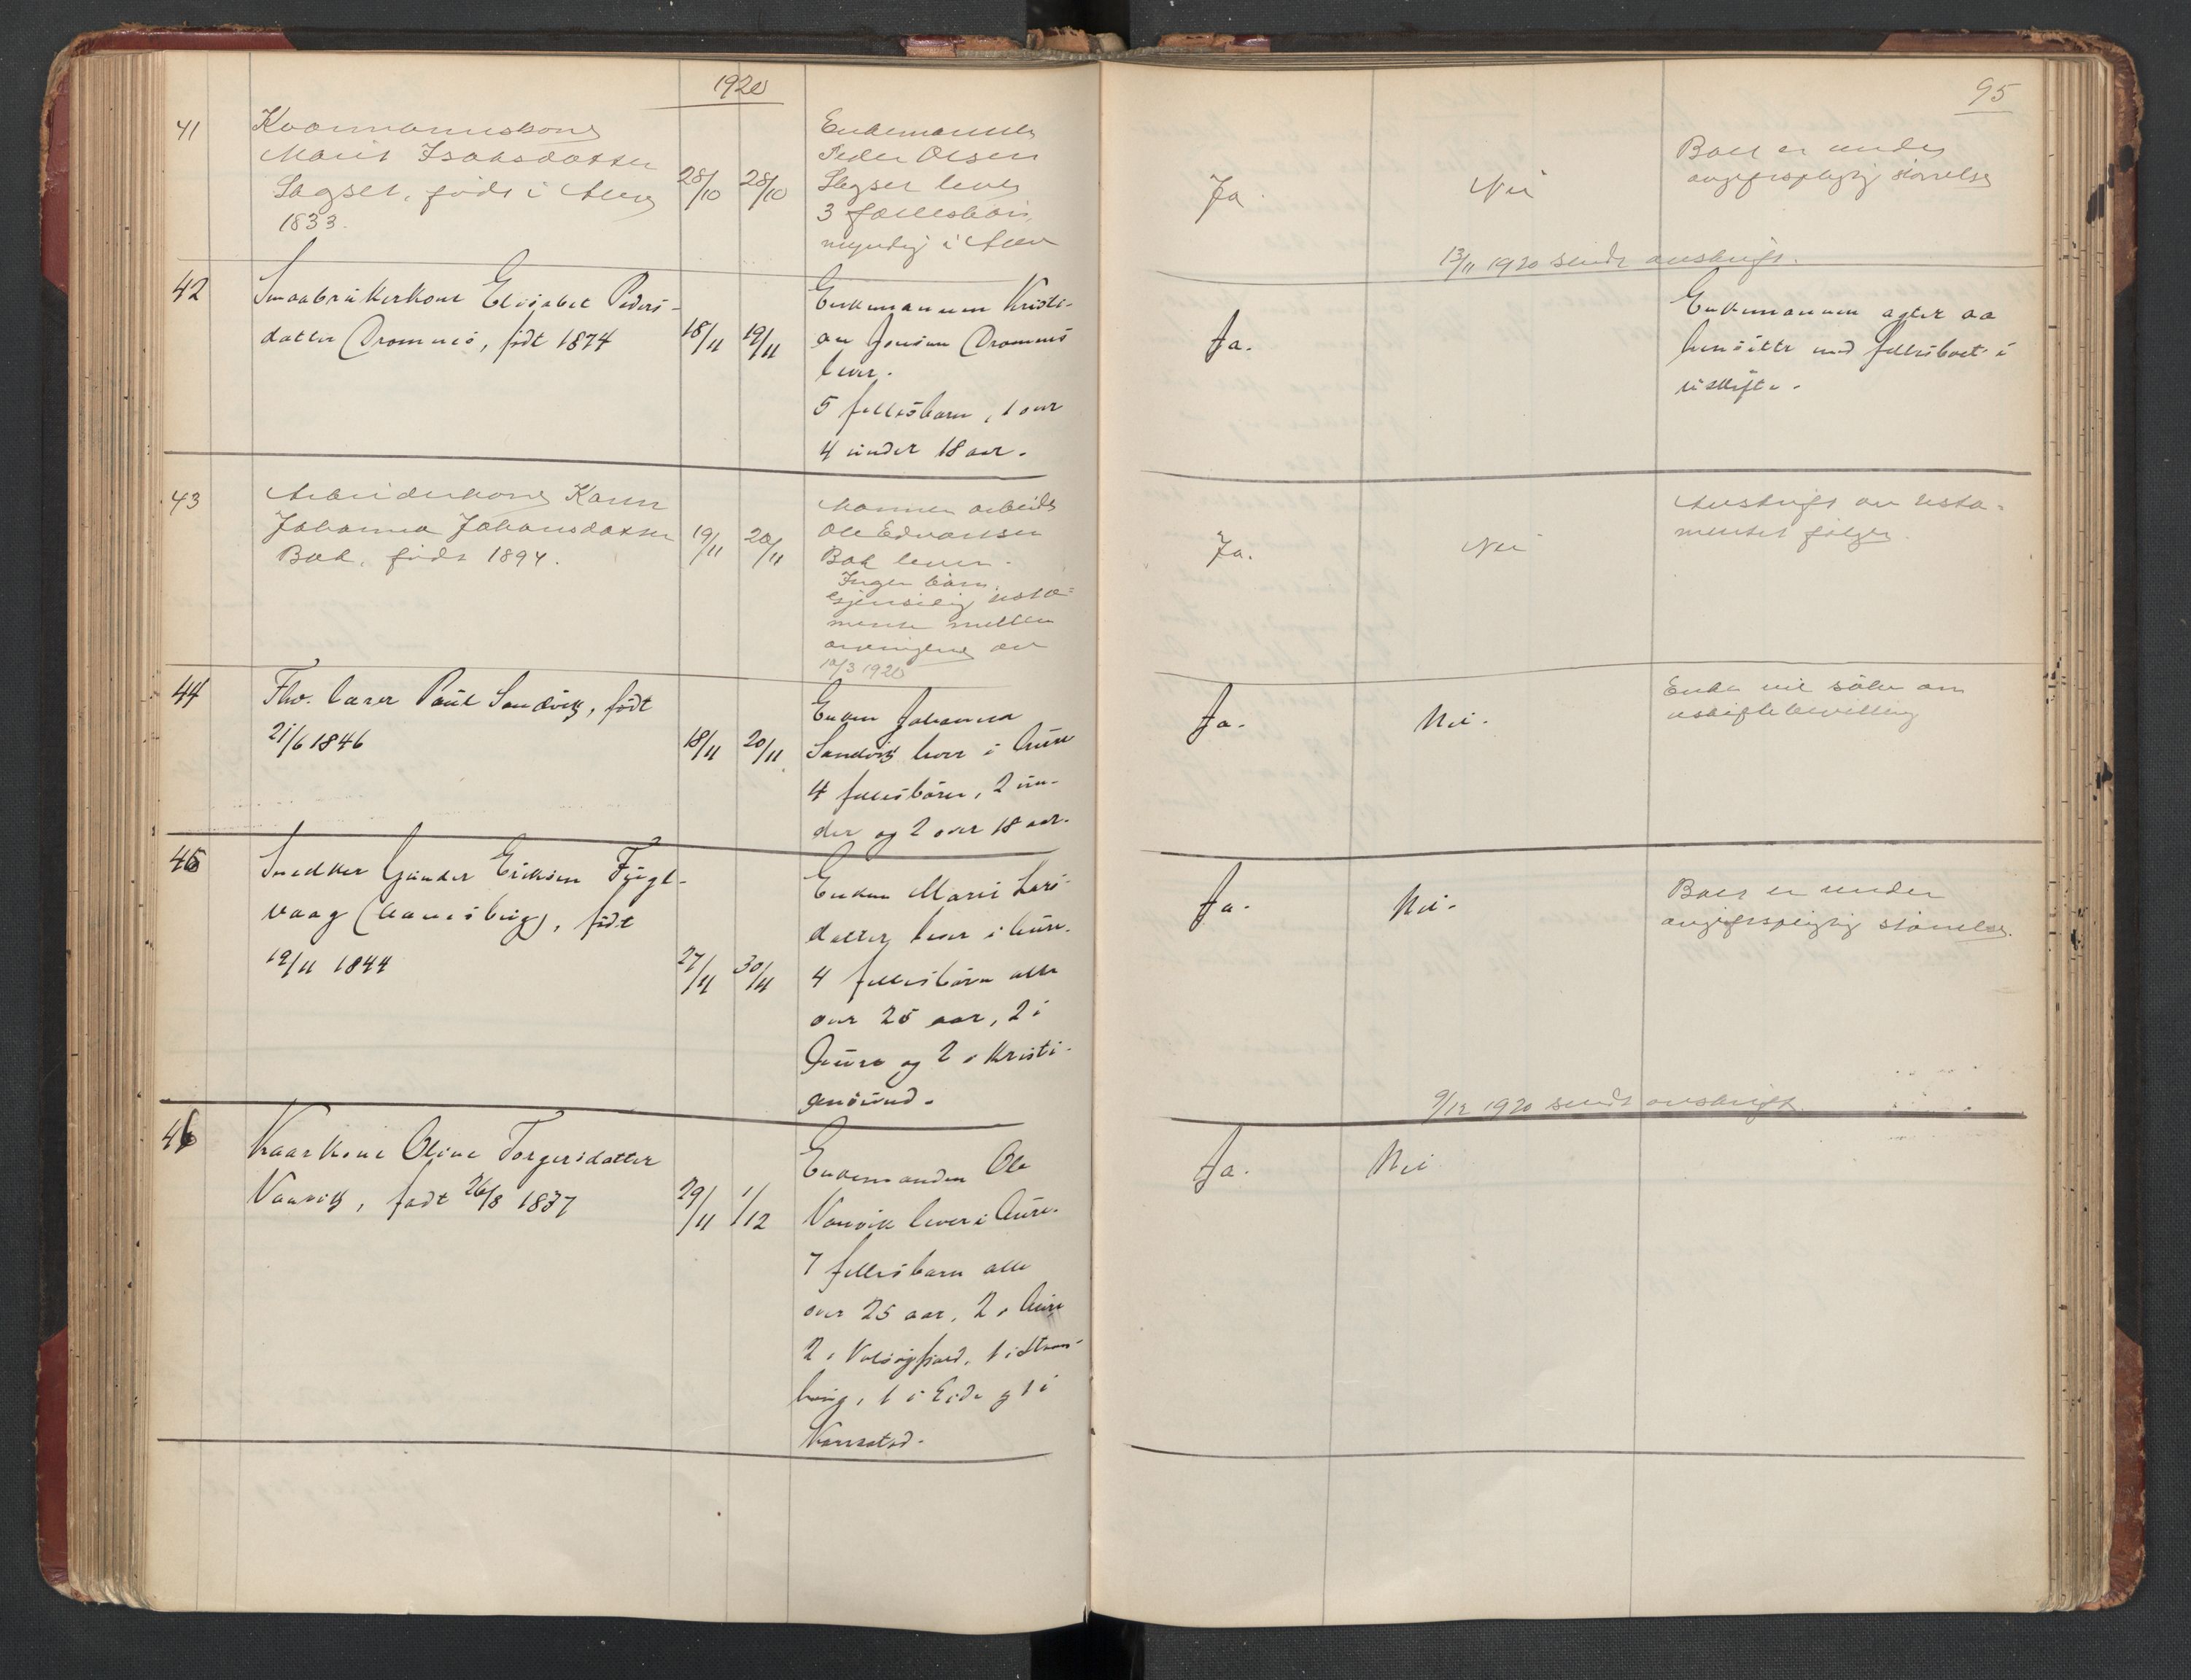 1920
95
41
Kaarmannskone
Marit Isaksdatter
Sagset, født i Aure
1833.
28/10
28/10
Enkemannen
Peder Olsen
Sagset lever
3 fællesbarn,
myndig i Aure
Ja
Nei
Boet er under
avgiftspligtig størrelse
13/11 1920 sendt avskrift.
42
Smaabrukerkone Elisabet Peders-
datter Dromnes, født 1874
18/11
19/11
Enkemannen Kristi-
an Jensen Dromnes
lever.
5 fellesbarn, 1 over
4 under 18 aar.
Ja.
Enkemannen agter aa
hensitte med fellesboet i
uskifte.
43
Arbeiderkone Karen
Johanna Johansdatter
Bak, født 1894.
19/11
20/11
Mannen arbeider
Ole Edvardsen
Bak lever.
Ingen barn.
Gjensidig testa=
mente mellem
arvingene av
10/3 1920
Ja.
Nei
Avskrift av testa=
mentet følger.
44
Fhv. lærer Paul Sandvik, født
21/6 1846
18/11
20/11
Enken Johanna
Sandvik lever i Aure
4 fellesbørn, 2 un-
der og 2 over 18 aar.
Ja.
Nei.
Enken vil søke om
uskiftebevilling
45
Snedker Gunder Eriksen Fugl-
vaag, født
19/11 1844
27/11
30/11
Enken Marit Lars-
datter lever i Aure.
4 fellesbørn alle
over 25 aar, 2 i
Aure og 2 i Kristi-
ansund.
Ja.
Nei.
Boet er under
avgiftspligtig størrelse.
9/12 1920 sendt avskrift.
46
Kaarkone Oline Torgersdatter
Vaavik, født 26/8 1837
29/11
1/12
Enkemanden Ole
Vaavik lever i Aure.
7 fellesbarn alle
over 25 aar, 2 i Aure
2 i Valsøyfjord, 1 i Strams-
, 1 i Eide og 1 i
Ja.
Nei